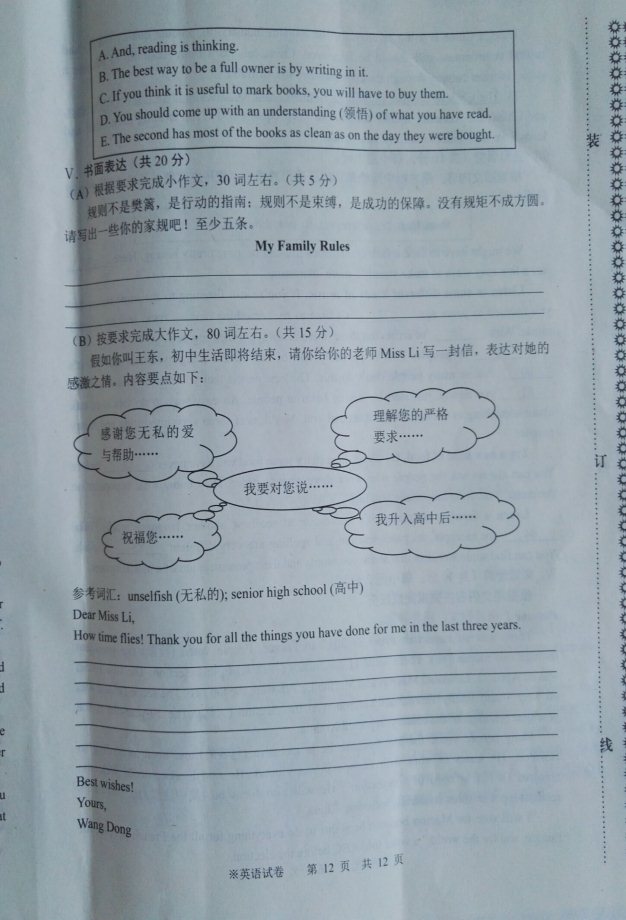 A. And, reading is thinking.
B. The best way to be a full owner is by writing in it.
C. If you think it is useful to mark books, you will have to buy them.
D. You should come up with an understanding (领悟) of what you have read.
E. The second has most of the books as clean as on the day they were bought.
V. 书面表达（共 20 分）
（A）根据要求完成小作文，30 词左右。（共 5 分）
规则不是樊篱，是行动的指南；规则不是束缚，是成功的保障。没有规矩不成方圆。
请写出一些你的家规吧！至少五条。
My Family Rules
（B）按要求完成大作文，80 词左右。（共 15 分）
假如你叫王东，初中生活即将结束，请你给你的老师 Miss Li 写一封信，表达对她的
感激之情。内容要点如下：
感谢您无私的爱
与帮助……
理解您的严格
要求……
我要对您说……
祝福您……
我升入高中后……
参考词汇：unselfish (无私的); senior high school (高中)
Dear Miss Li,
How time flies! Thank you for all the things you have done for me in the last three years.
Best wishes!
Yours,
Wang Dong
※英语试卷 第 12 页 共 12 页
装
订
线